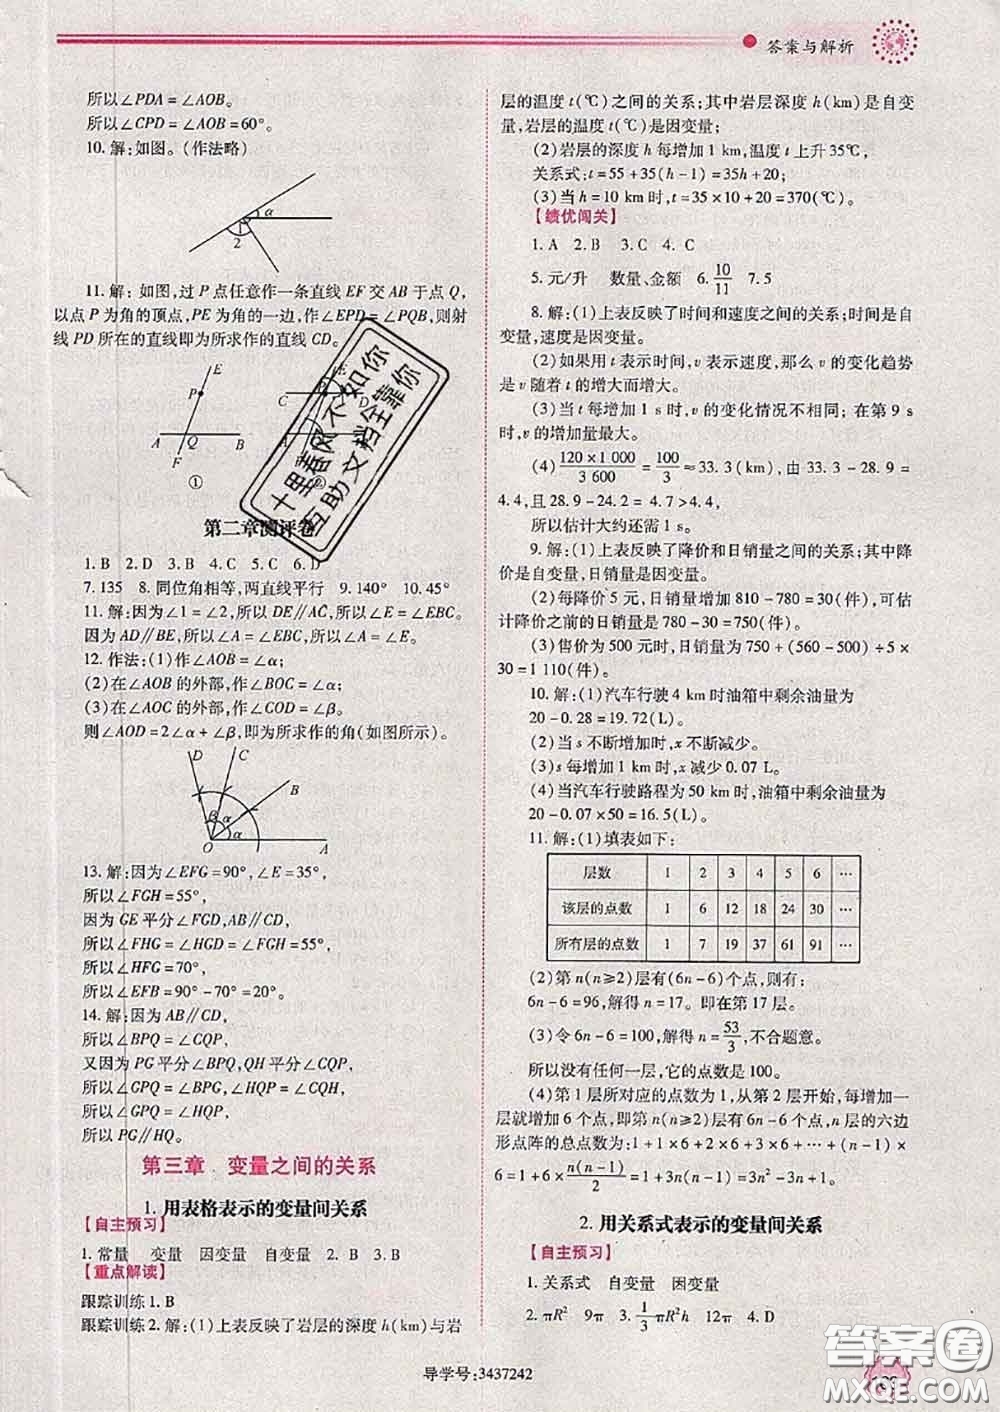 答案与解析
所以∠PDA=∠AOB。
所以∠CPD=∠AOB=60°。
10. 解:如图。(作法略)
α
1
2
11. 解: 如图,过 P 点任意作一条直线 EF 交 AB 于点 Q,
以点 P 为角的顶点,PE 为角的一边,作∠EPD=∠PQB,则射
线 PD 所在的直线即为所求作的直线 CD。
E
P
A Q B
F
①
C D
A
第二章测评卷
1. B 2. D 3. B 4. C 5. C 6. D
7. 135 8. 同位角相等,两直线平行 9. 140° 10. 45°
11. 解:因为∠1=∠2,所以 DE∥AC,所以∠E=∠EBC。
因为 AD∥BE,所以∠A=∠EBC,所以∠A=∠E。
12. 作法:(1)作∠AOB=∠α;
(2)在∠AOB 的外部,作∠BOC=∠α;
(3)在∠AOC 的外部,作∠COD=∠β。
则∠AOD=2∠α+∠β,即为所求作的角(如图所示)。
D C
B
β α
α
O A
13. 解:因为∠EFG=90°,∠E=35°,
所以∠FGH=55°,
因为 GE 平分∠FGD,AB∥CD,
所以∠FHG=∠HGD=∠FGH=55°,
所以∠HFG=70°,
所以∠EFB=90°-70°=20°。
14. 解:因为 AB∥CD,
所以∠BPQ=∠CQP,
又因为 PG 平分∠BPQ,QH 平分∠CQP,
所以∠GPQ=∠BPG,∠HQP=∠CQH,
所以∠GPQ=∠HQP,
所以 PG∥HQ。
第三章 变量之间的关系
1. 用表格表示的变量间关系
【自主预习】
1. 常量 变量 因变量 自变量 2. B 3. B
【重点解读】
跟踪训练 1. B
跟踪训练 2. 解:(1)上表反映了岩层的深度 h(km)与岩
层的温度 t(℃)之间的关系;其中岩层深度 h(km)是自变
量,岩层的温度 t(℃)是因变量;
(2)岩层的深度 h 每增加 1 km,温度 t 上升 35℃,
关系式:t=55+35(h-1)=35h+20;
(3)当 h=10 km 时,t=35×10+20=370(℃)。
【绩优闯关】
1. A 2. B 3. C 4. C
5. 元/升 数量、金额 6. 10/11 7. 5
8. 解:(1)上表反映了时间和速度之间的关系;时间是自
变量,速度是因变量。
(2)如果用 t 表示时间,v 表示速度,那么 v 的变化趋势
是 v 随着 t 的增大而增大。
(3)当 t 每增加 1 s 时,v 的变化情况不相同;在第 9 s
时,v 的增加量最大。
(4) 120×1 000/3 600 = 100/3 ≈33. 3(km),由 33. 3-28. 9=
4. 4,且 28. 9-24. 2=4. 7>4. 4,
所以估计大约还需 1 s。
9. 解:(1)上表反映了降价和日销量之间的关系;其中降
价是自变量,日销量是因变量。
(2)每降价 5 元,日销量增加 810-780=30(件),可估
计降价之前的日销量是 780-30=750(件)。
(3)售价为 500 元时,日销量为 750+(560-500)÷5×
30=1 110(件)。
10. 解:(1)汽车行驶 4 km 时油箱中剩余油量为
20-0. 28=19. 72(L)。
(2)当 s 不断增加时,x 不断减少。
(3)s 每增加 1 km 时,x 减少 0. 07 L。
(4)当汽车行驶路程为 50 km 时,油箱中剩余油量为
20-0. 07×50=16. 5(L)。
11. 解:(1)填表如下:
层数 1 2 3 4 5 6 …
该层的点数 1 6 12 18 24 30 …
所有层的点数 1 7 19 37 61 91 …
(2)第 n(n≥2)层有(6n-6)个点,则有:
6n-6=96,解得 n=17。即在第 17 层。
(3)令 6n-6=100,解得 n=53/3,不合题意。
所以没有任何一层,它的点数是 100。
(4)第 1 层所对应的点数为 1,从第 2 层开始,每增加一
层就增加 6 个点,即第 n(n≥2)层有 6n-6 个点,n 层的六边
形点阵的总点数为:1+1×6+2×6+3×6+…+(n-1)×
6=1+6×n(n-1)/2=1+3n(n-1)=3n²-3n+1。
2. 用关系式表示的变量间关系
【自主预习】
1. 关系式 自变量 因变量
2. πR² 9π 3. 1/3πR²h 12π 4. D
导学号:3437242
十里春风不如你
互助文档全靠你
答案圈
MXQE.COM